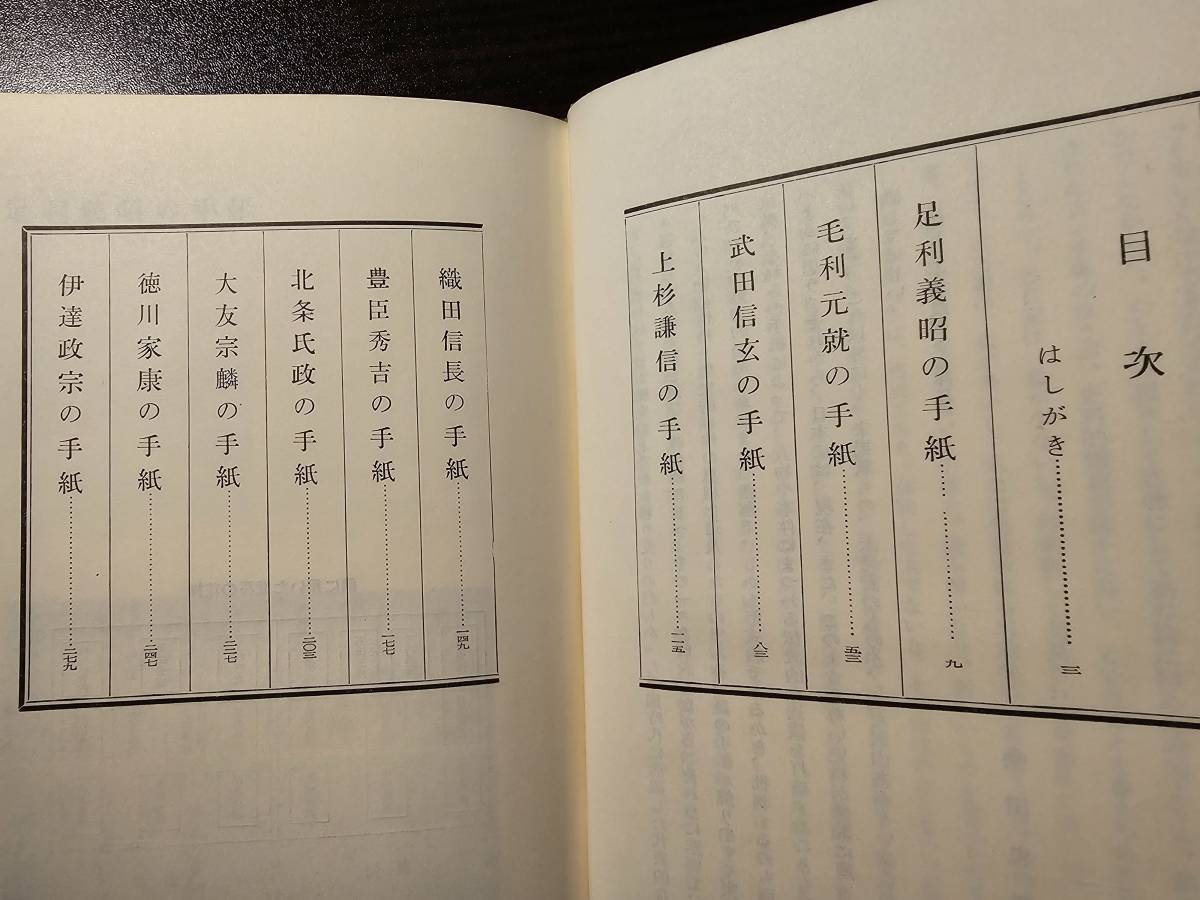 目次
はしがき……………三
足利義昭の手紙……………九
毛利元就の手紙……………五三
武田信玄の手紙……………八三
上杉謙信の手紙……………一一五
織田信長の手紙……………一四九
豊臣秀吉の手紙……………一七七
北条氏政の手紙……………二〇三
大友宗麟の手紙……………二二七
徳川家康の手紙……………二四七
伊達政宗の手紙……………二七九